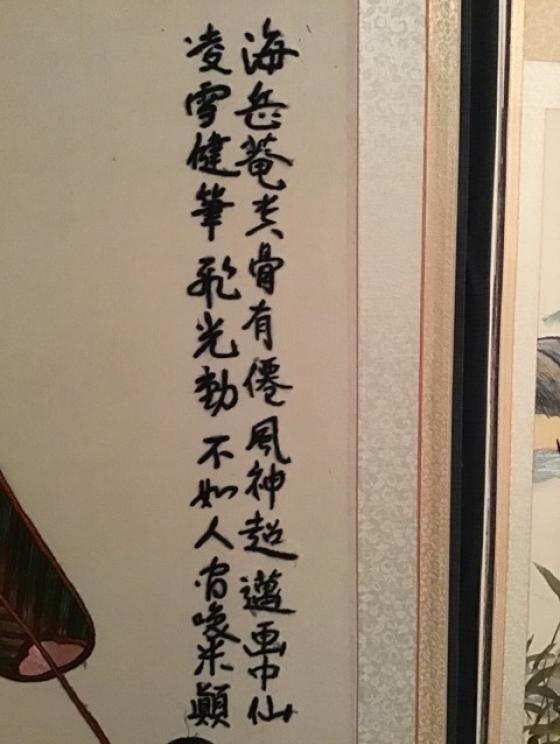 海岳菴骨有僊風神超邁画中仙
凌雪健筆飛光動不如人皆喚米顛